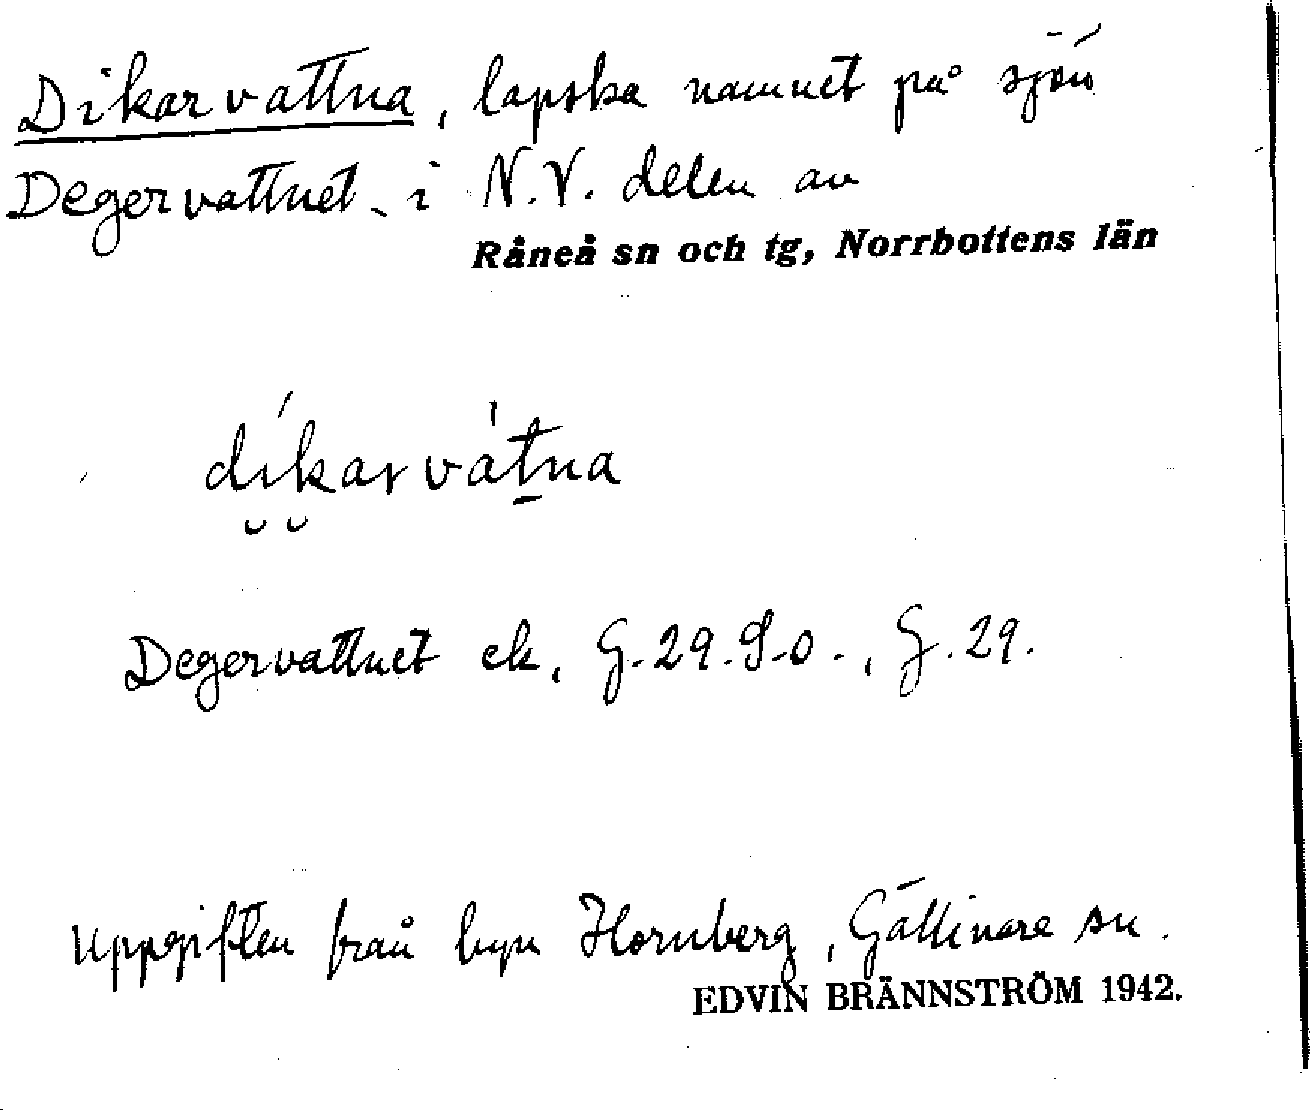 Dikarvattna, lapska namnet på sjön
Degervattnet i N.V. delen av
Råneå sn och tg, Norrbottens län
díkarvátna
Degervattnet ek, G.29.S.o., G.29.
Uppgiften från byn Hornberg, Gällivare sn.
EDVIN BRÄNNSTRÖM 1942.